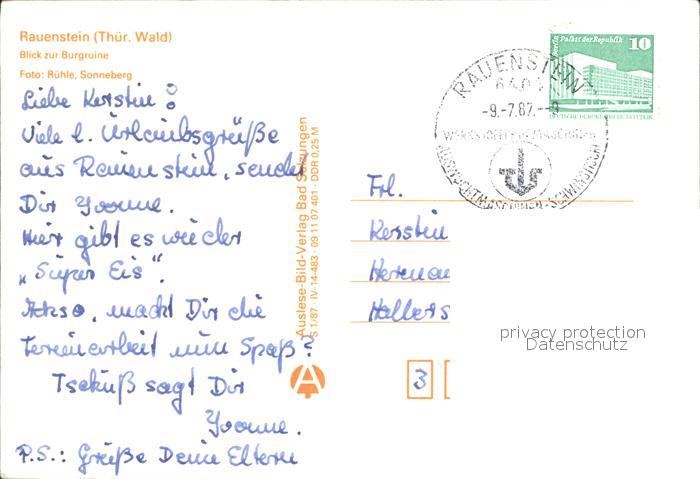 Rauenstein (Thür. Wald)
Blick zur Burgruine
Foto: Rühle, Sonneberg
Liebe Kerstin!
Viele l. Urlaubsgrüße
aus Rauenstein, sendet
Dir Yvonne.
Hier gibt es wieder
„Super Eis“.
Achso, macht Dir die
Ferienarbeit nun Spaß?
Tschüß sagt Dir
Yvonne.
P.S.: Grüße Deine Eltern
Auslese-Bild-Verlag Bad Salzungen
S 1/87 · IV-14-483 · 09 11 07 401 · DDR 0,25 M
Berlin, Palast der Republik 10
DEUTSCHE DEMOKRATISCHE REPUBLIK
RAUENSTEIN
-9.-7.87.
Frl.
Kerstin
Hallers
3
privacy protection
Datenschutz